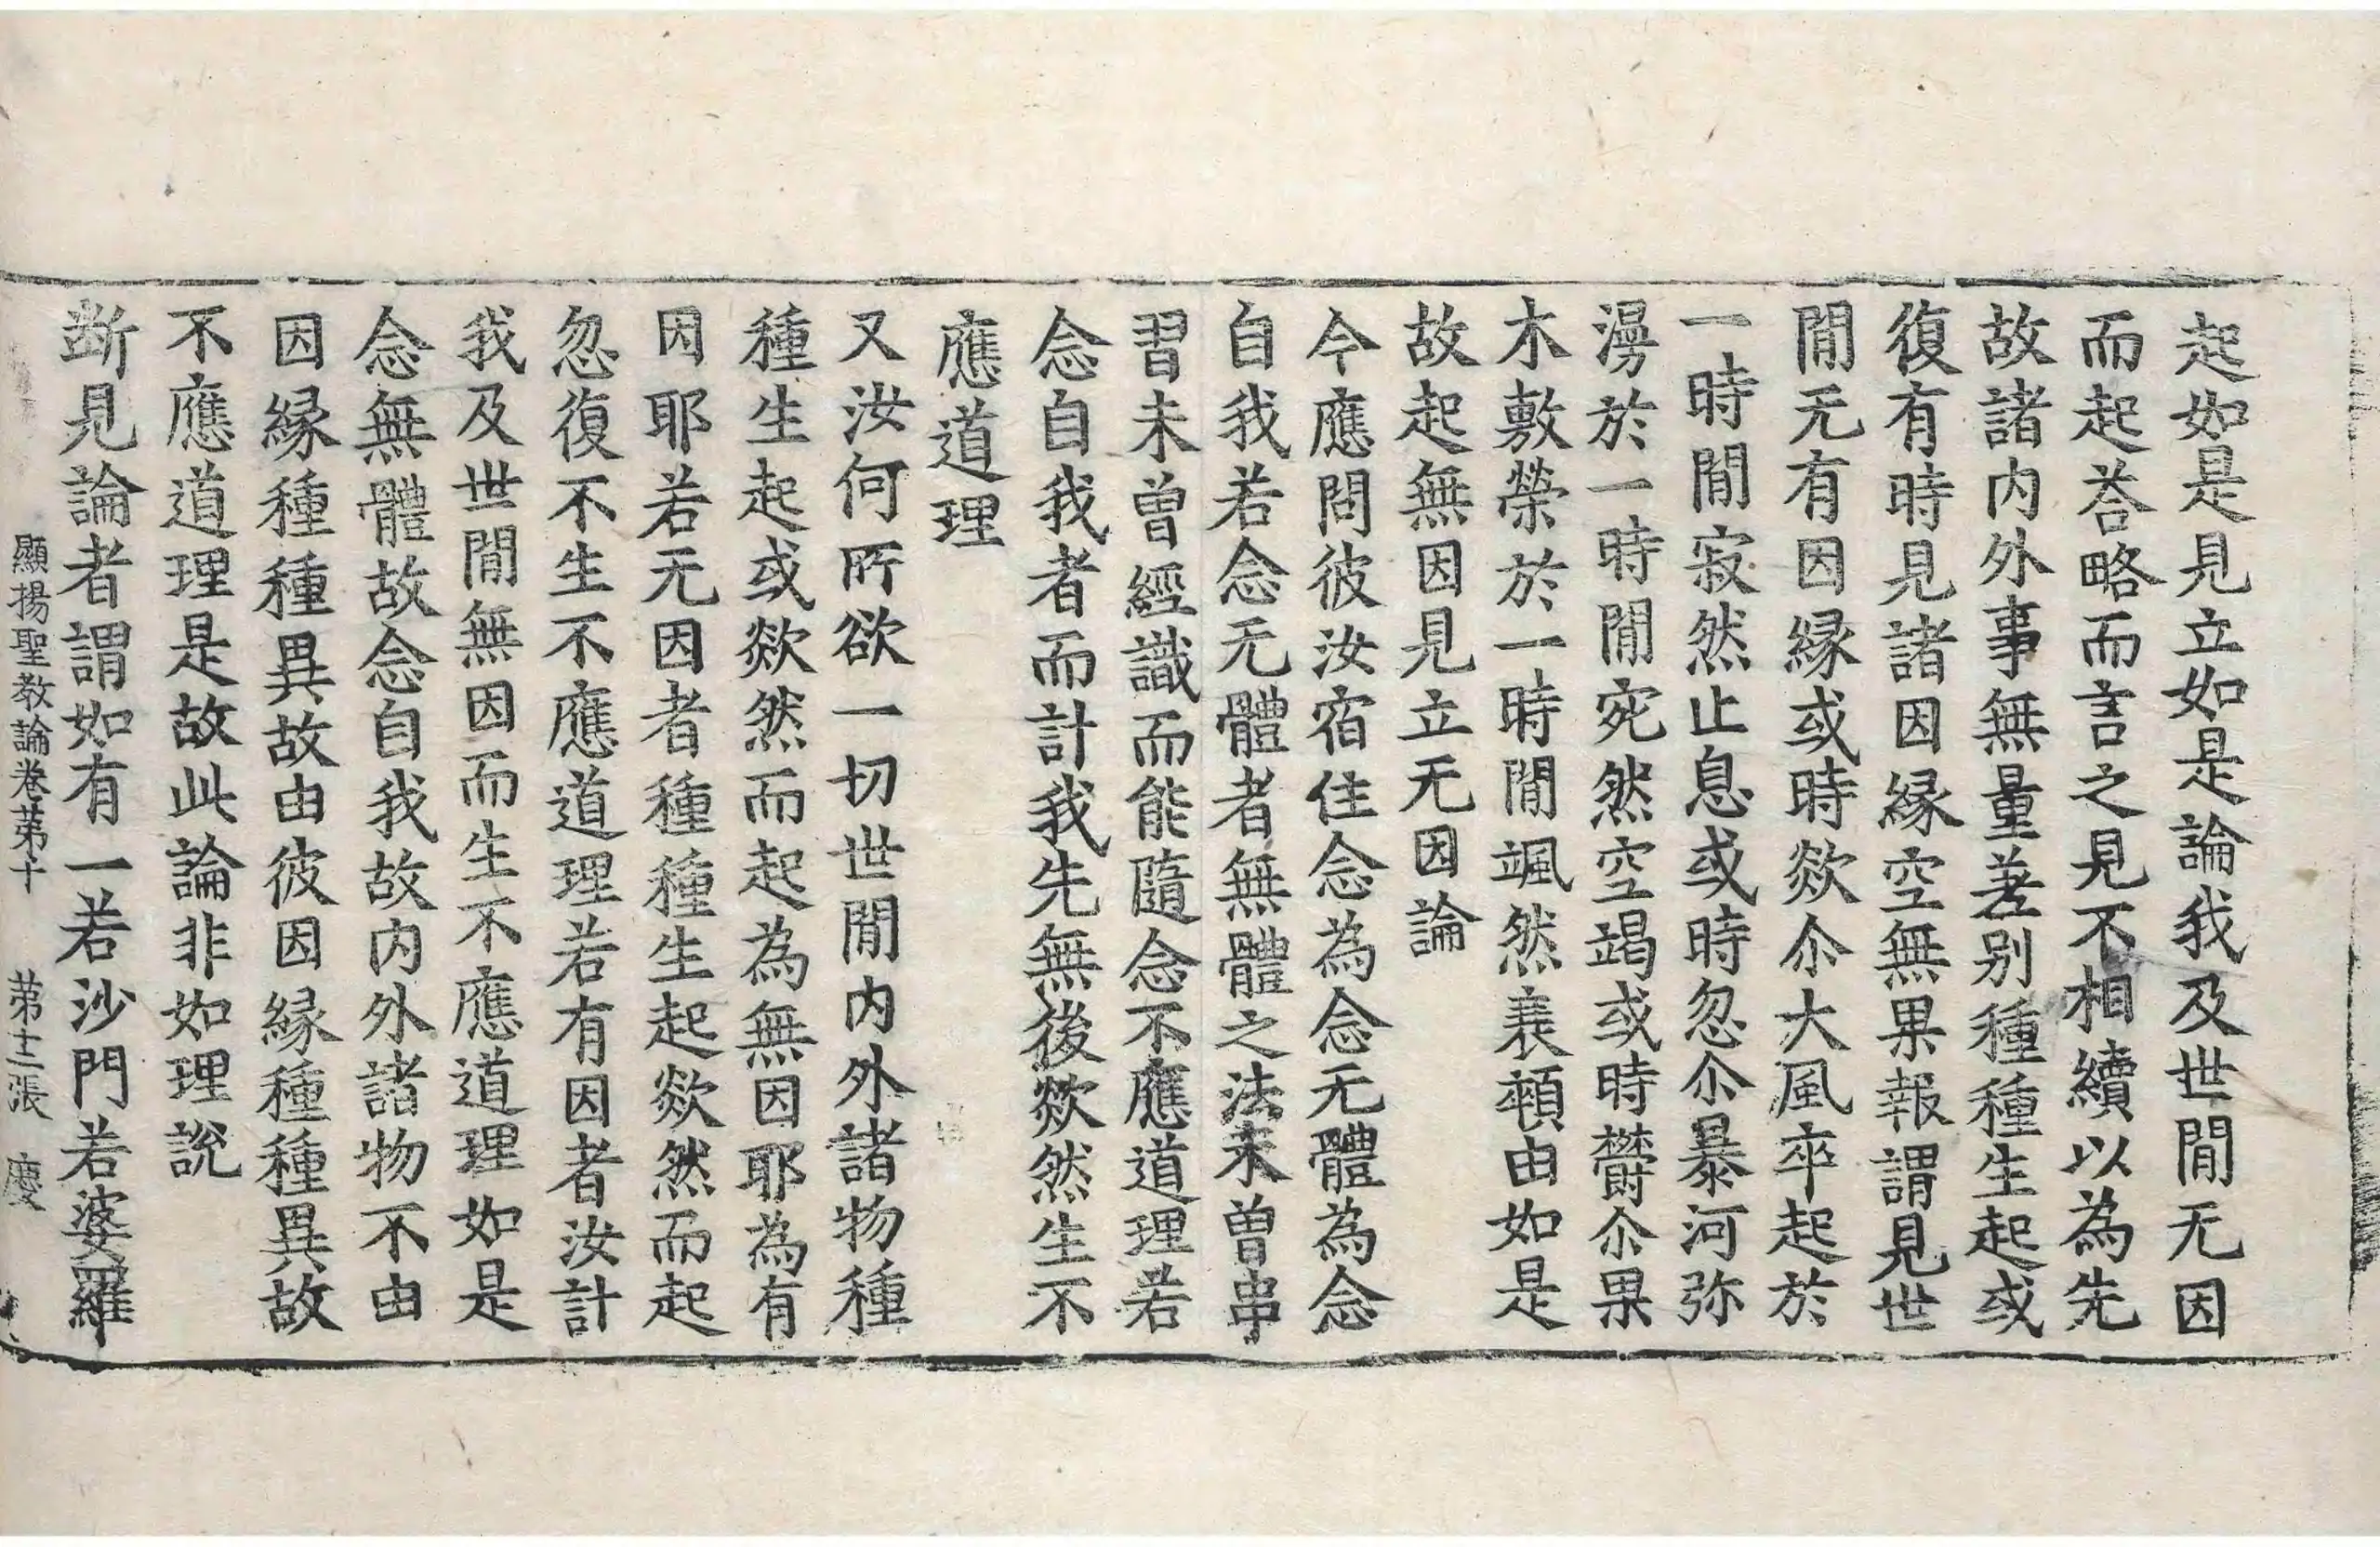 起如是見立如是論我及世閒无因
而起荅略而言之見不相續以為先
故諸内外事無量差别種種生起或
復有時見諸因緣空無果報謂見世
閒无有因緣或時欻尒大風卒起於
一時閒寂然止息或時忽尒暴河弥
漫於一時閒宛然空竭或時欝尒果
木敷榮於一時閒颯然衰顇由如是
故起無因見立无因論
今應問彼汝宿住念為念无體為念
自我若念无體者無體之法未曾串
習未曾經識而能隨念不應道理若
念自我者而計我先無後欻然生不
應道理
又汝何所欲一切世閒内外諸物種
種生起或欻然而起為無因耶為有
因耶若无因者種種生起欻然而起
忽復不生不應道理若有因者汝計
我及世閒無因而生不應道理如是
念無體故念自我故内外諸物不由
因緣種種異故由彼因緣種種異故
不應道理是故此論非如理說
斷見論者謂如有一若沙門若婆羅
顯揚聖教論卷苐十 苐十二張 慶